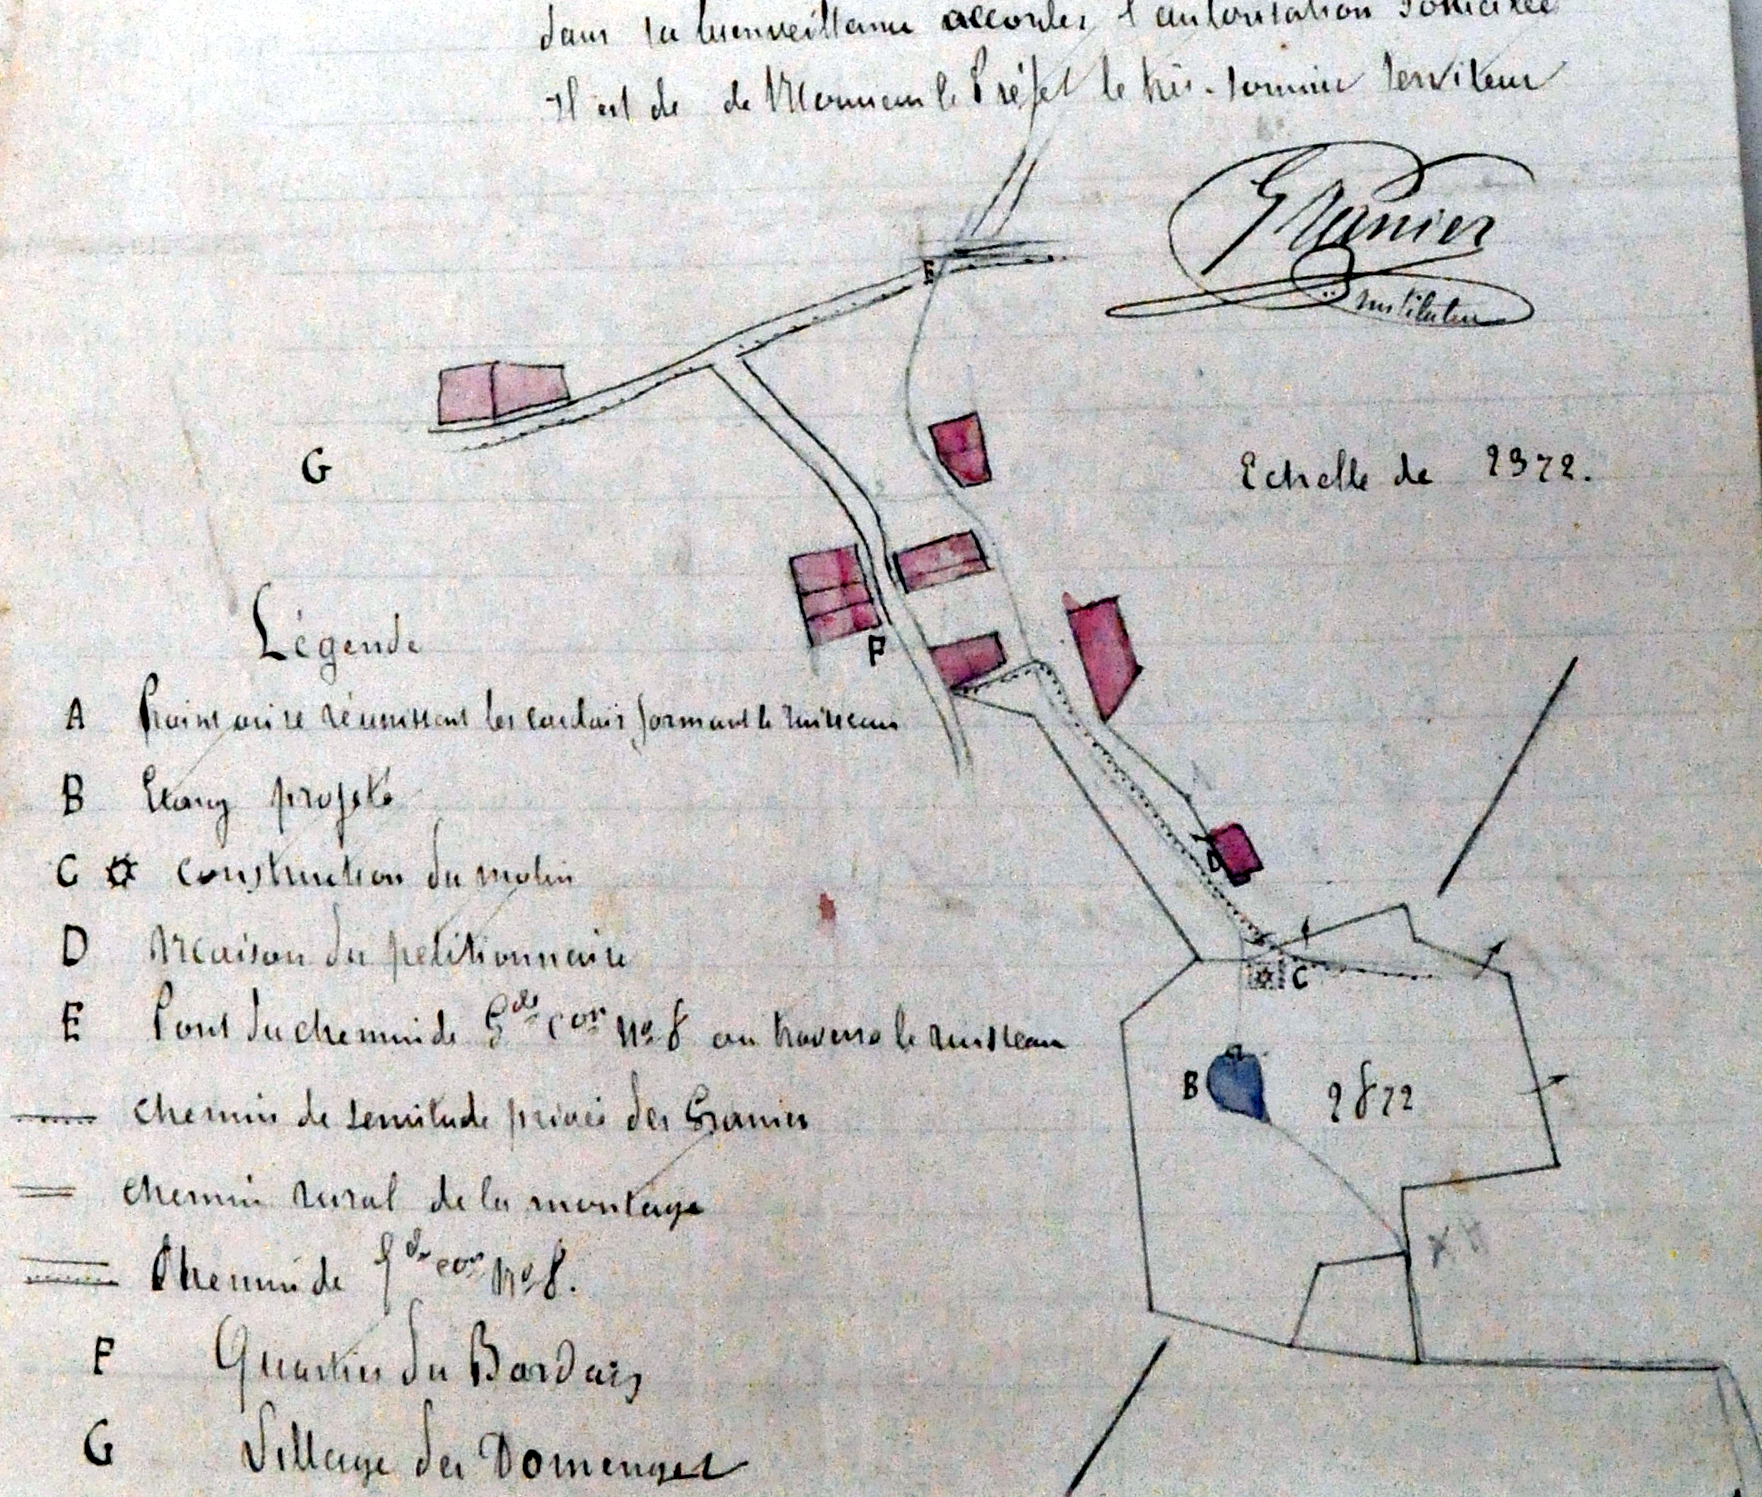 dans sa bienveillance accorder l'autorisation sollicitée
Il est de de Monsieur le Préfet le très-soumis serviteur
Granier
Instituteur
E
G
Echelle de 2372.
F
Légende
A réunissent les formant le ruisseau
B Etang projeté
C construction du molin
D Maison du petitionnaire
D
C
E Pont du chemin de Gde Con No 8 ou traverse le ruisseau
B
2872
chemin de servitude privée des Granier
chemin rural de la montage
Chemin de gde con No 8.
F Quartier du Bardais
G Village des Domenget